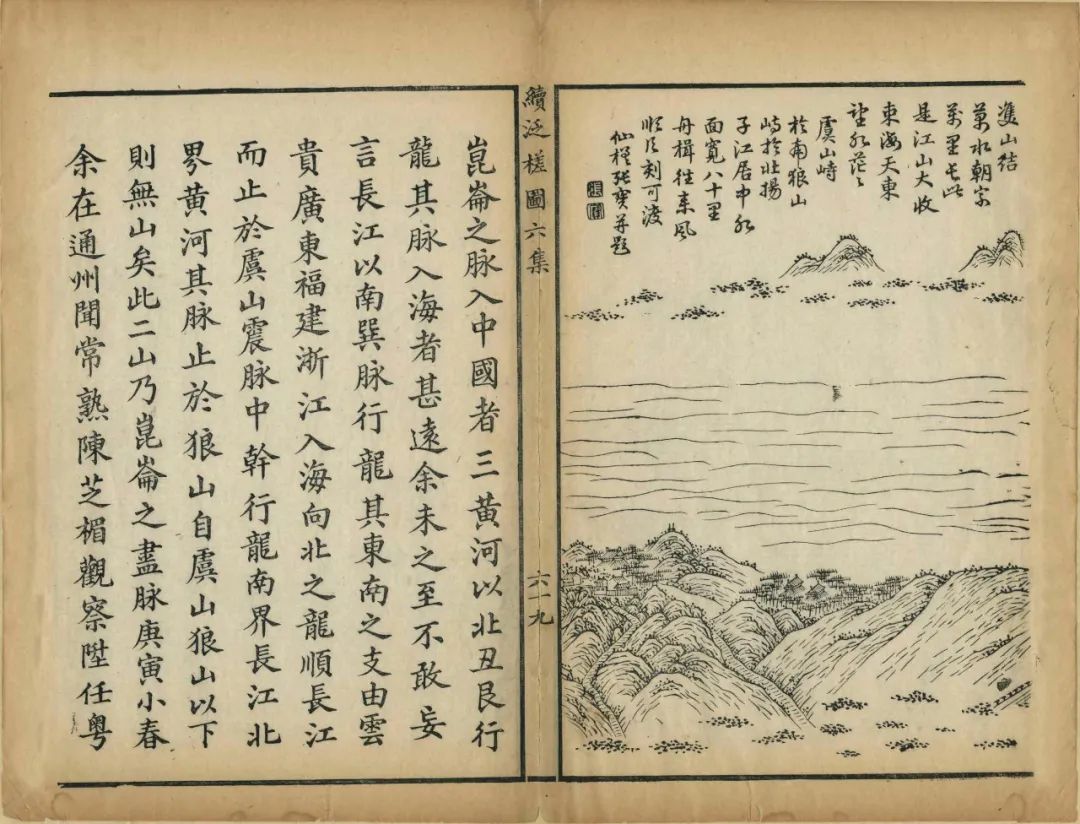 山結
萬水朝宗
萬里長此
是江山大收
東海天東
望水茫〻
虞山峙
於南狼山
峙於北揚
子江居中水
面寬八十里
舟楫往来風
順片刻可渡
仙槎張寶并題
續泛槎圖六集
六十九
崑崙之脉入中國者三黃河以北丑艮行
龍其脉入海者甚遠余未之至不敢妄
言長江以南巽脉行龍其東南之支由雲
貴廣東福建浙江入海向北之龍順長江
而止於虞山震脉中幹行龍南界長江北
界黃河其脉止於狼山自虞山狼山以下
則無山矣此二山乃崑崙之盡脉庚寅小春
余在通州聞常熟陳芝楣觀察陞任粵